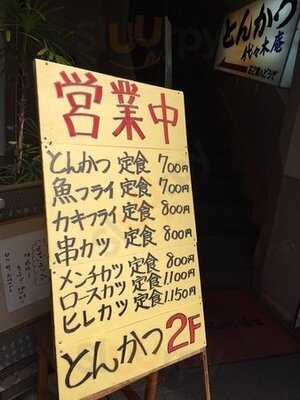 とんかつ
代々木庵
営業中
とんかつ 定食 700円
魚フライ 定食 700円
カキフライ 定食 800円
串カツ 定食 800円
メンチカツ 定食 800円
ロースカツ 定食 1.100円
ヒレカツ 定食 1.150円
とんかつ 2F